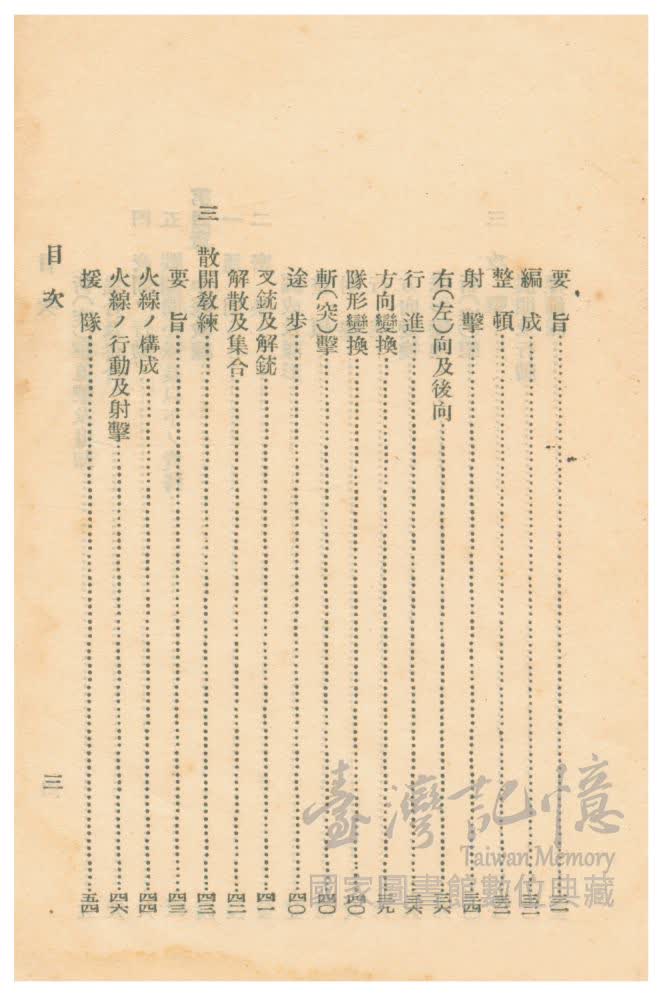 要旨
編成
整頓
射擊……三四
右(左)向及後向……三六
行進……三六
方向變換……三九
隊形變換……四〇
斬(突)擊……四〇
途歩……四〇
叉銃及解銃……四一
解散及集合……四二
三 散開教練……四三
要旨……四三
火線ノ構成……四四
火線ノ行動及射擊……四六
援隊……五四
目次 三
臺灣記憶
Taiwan Memory
國家圖書館數位典藏